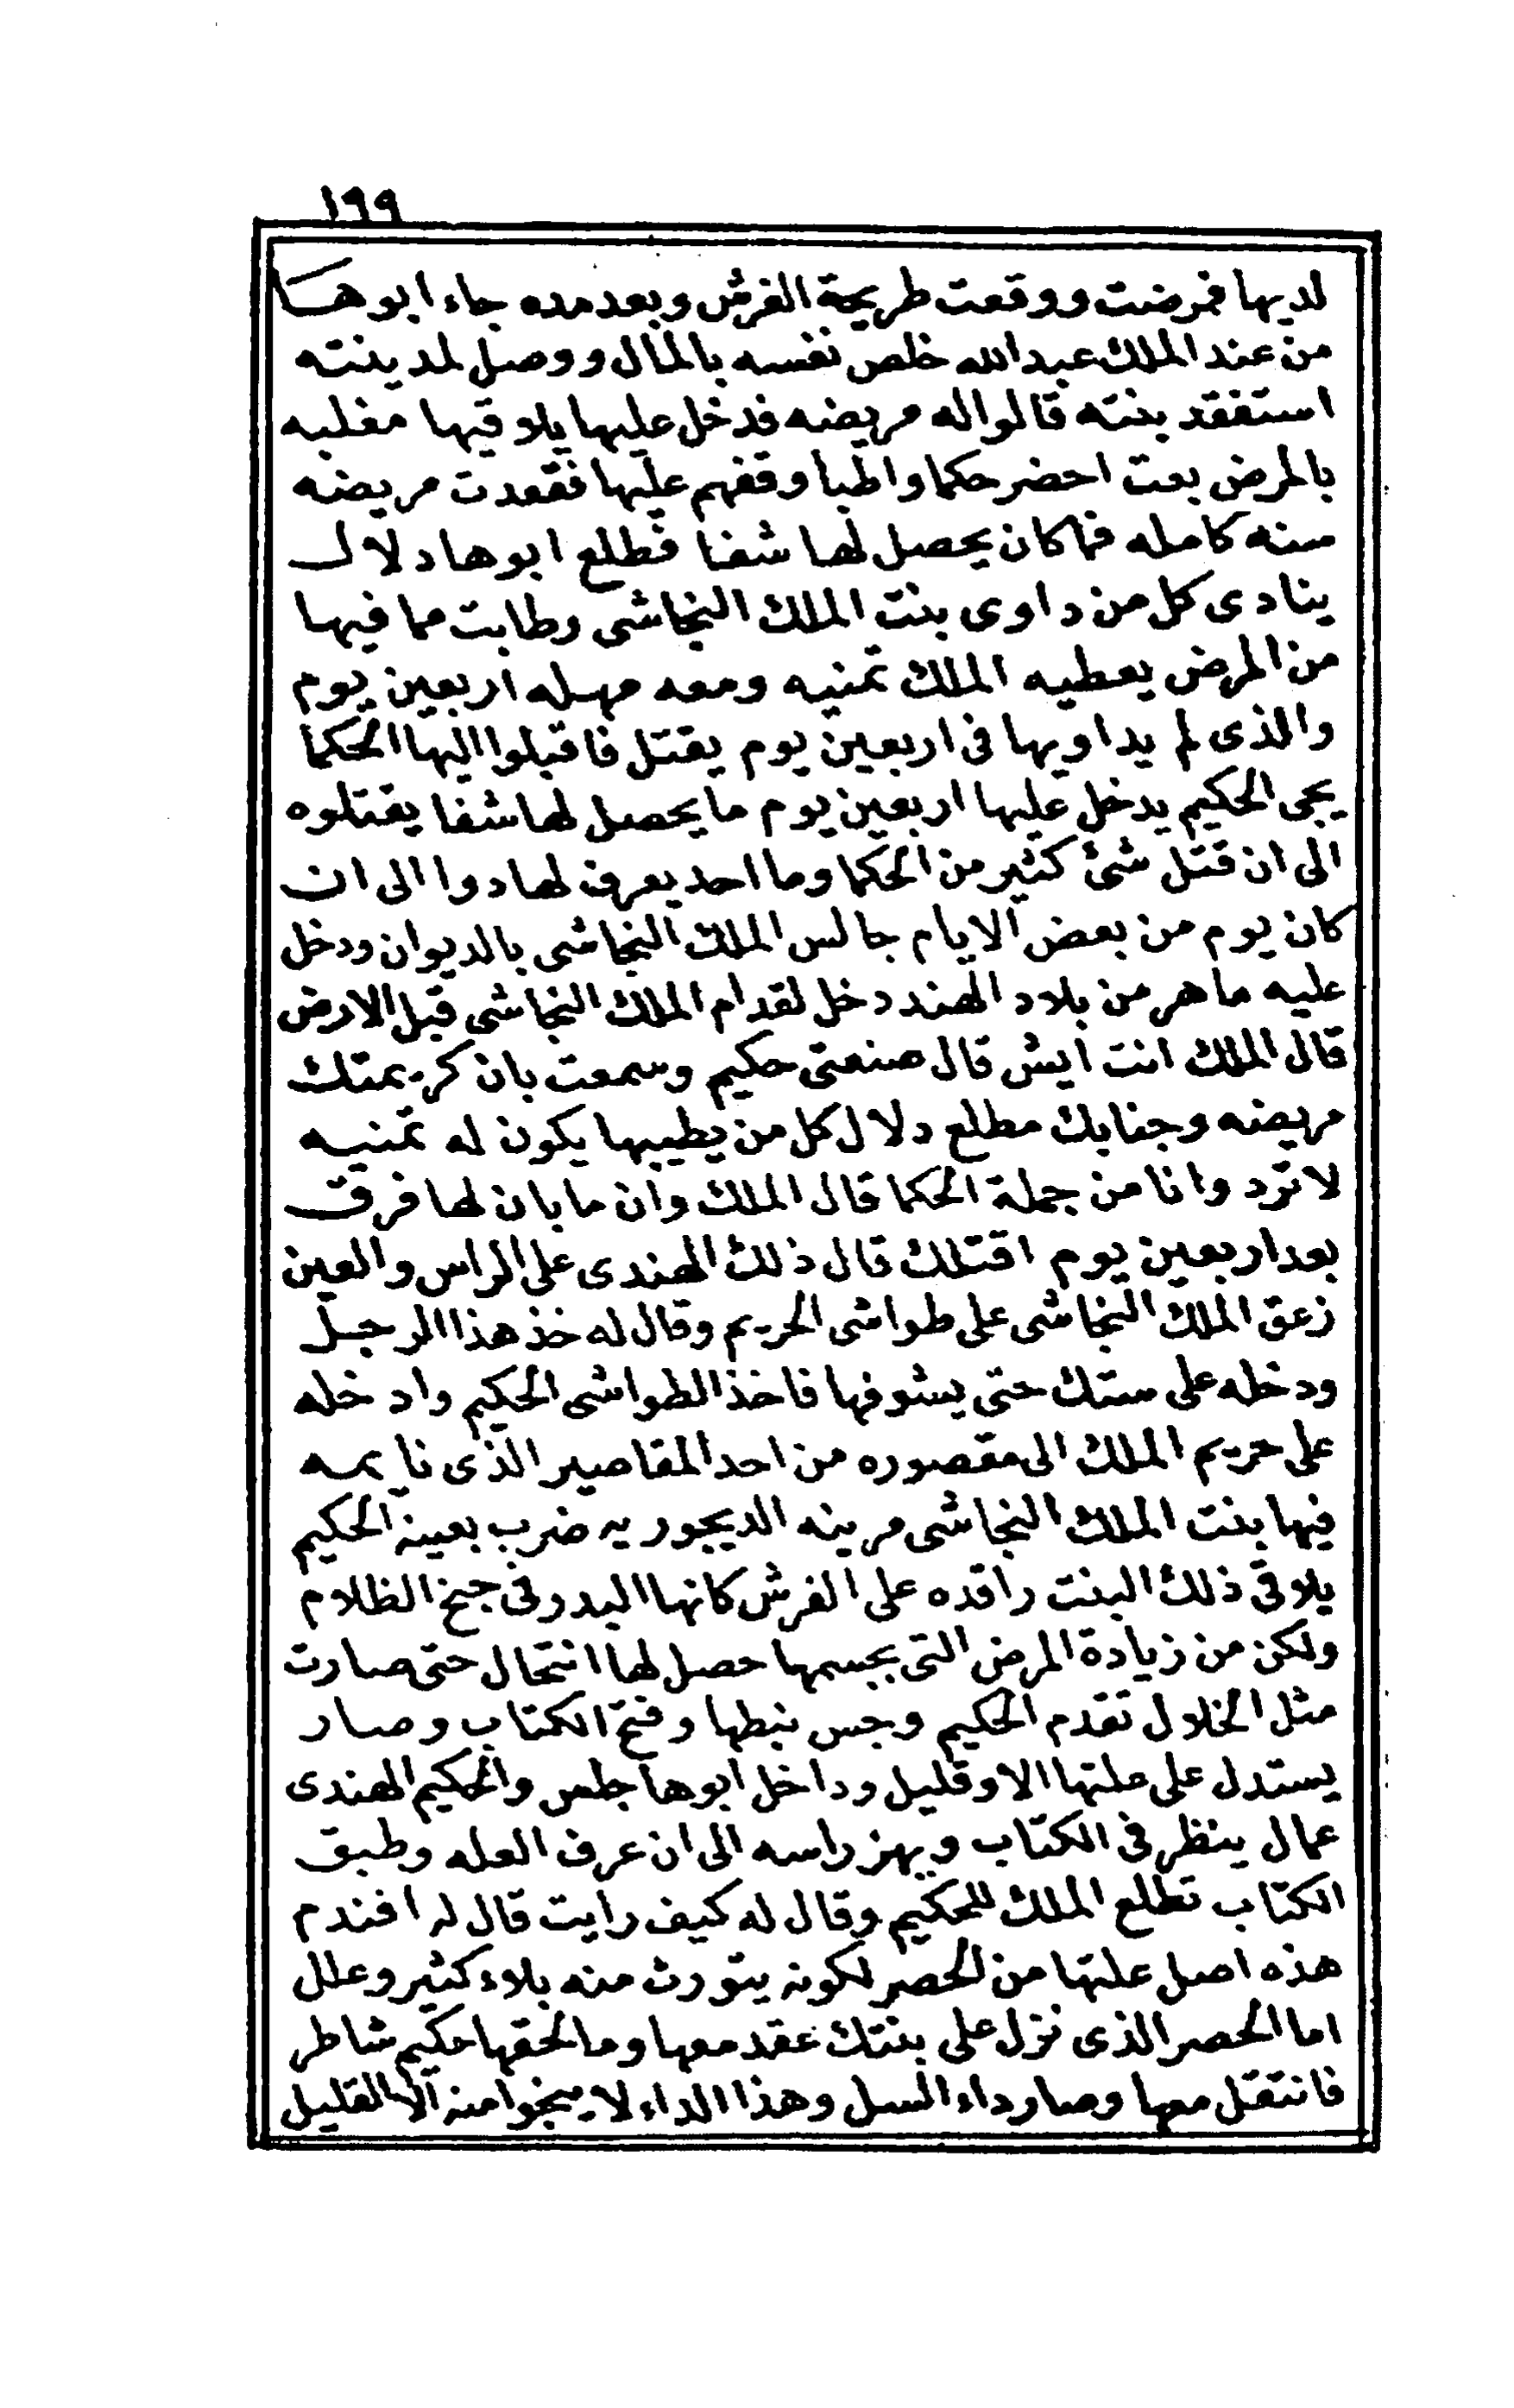 ١٩٩
لديها فمرضت ووقعت طريحة الفرش وبعد مده جاء ابوها
من عند الملك عبد الله خلص نفسه بالمال ووصل لمدينته
استفقد بنته قالوا له مريضه فدخل عليها يلاقيها مغلبه
بالمرض بعت احضر حكما واطبا وقفهم عليها فقعدت مريضه
سنه كامله فما كان يحصل لها شفا فطلع ابوها دلال
ينادى كل من داوى بنت الملك النجاشى وطابت مما فيها
من المرض يعطيه الملك تمنيه ومعه مهله اربعين يوم
والذى لم يداويها فى اربعين يوم يقتل فاقبلوا اليها الحكما
يجى الحكيم يدخل عليها اربعين يوم ما يحصل لها شفا يقتلوه
الى ان قتل شئ كثير من الحكما وما احد يعرف لها دوا الى ان
كان يوم من بعض الايام جالس الملك النجاشى بالديوان ودخل
عليه ماهر من بلاد الهند دخل لقدام الملك النجاشى قبل الارض
قال الملك انت ايش قال صنعتى حكيم وسمعت بان كريمتك
مريضه وجنابك مطلع دلال كل من يطيبها يكون له تمنيه
لا ترد وانا من جملة الحكما قال الملك وان ما بان لها فرق
بعد اربعين يوم اقتلك قال ذلك الهندى على الراس والعين
زعق الملك النجاشى على طواشى الحريم وقال له خذ هذا الرجل
ودخله على ستك حتى يشوفها فاخذ الطواشى الحكيم وادخله
على حريم الملك الى مقصوره من احد المقاصير الذى نايمه
فيها بنت الملك النجاشى مرينه الديجوريه ضرب بعينه الحكيم
يلاقى ذلك البنت راقده على الفرش كانها البدر فى جنح الظلام
ولكن من زيادة المرض التى بجسمها حصل لها انتحال حتى صارت
مثل الخلال تقدم الحكيم وجس نبطها وفتح الكتاب وصار
يستدل على علتها الا وقليل وداخل ابوها جلس والحكيم الهندى
عمال ينظر فى الكتاب ويهز راسه الى ان عرف العله وطبق
الكتاب تطلع الملك للحكيم وقال له كيف رايت قال له افندم
هذه اصل علتها من الحصر لكونه يتورث منه بلاء كثير وعلل
اما الحصر الذى نزل على بنتك عقد معها وما لحقها حكيم شاطر
فانتقل معها وصار داء السل وهذا الداء لا ينجوا منه الا القليل